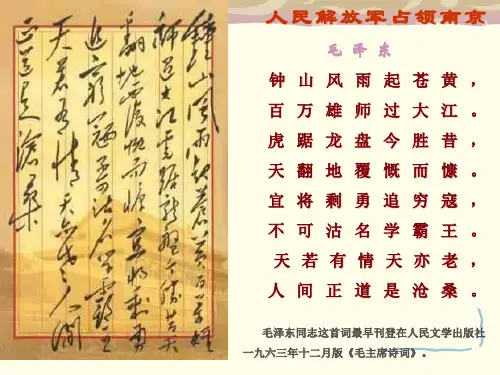 鍾山風雨起蒼黄百万雄
師过大江虎踞龍盤今勝昔天
翻地覆慨而慷宜将剩勇
追窮寇不可沽名学霸王
天若有情天亦老人间
正道是滄桑
人民解放军占领南京
毛泽东
钟山风雨起苍黄，
百万雄师过大江。
虎踞龙盘今胜昔，
天翻地覆慨而慷。
宜将剩勇追穷寇，
不可沽名学霸王。
天若有情天亦老，
人间正道是沧桑。
毛泽东同志这首词最早刊登在人民文学出版社
一九六三年十二月版《毛主席诗词》。